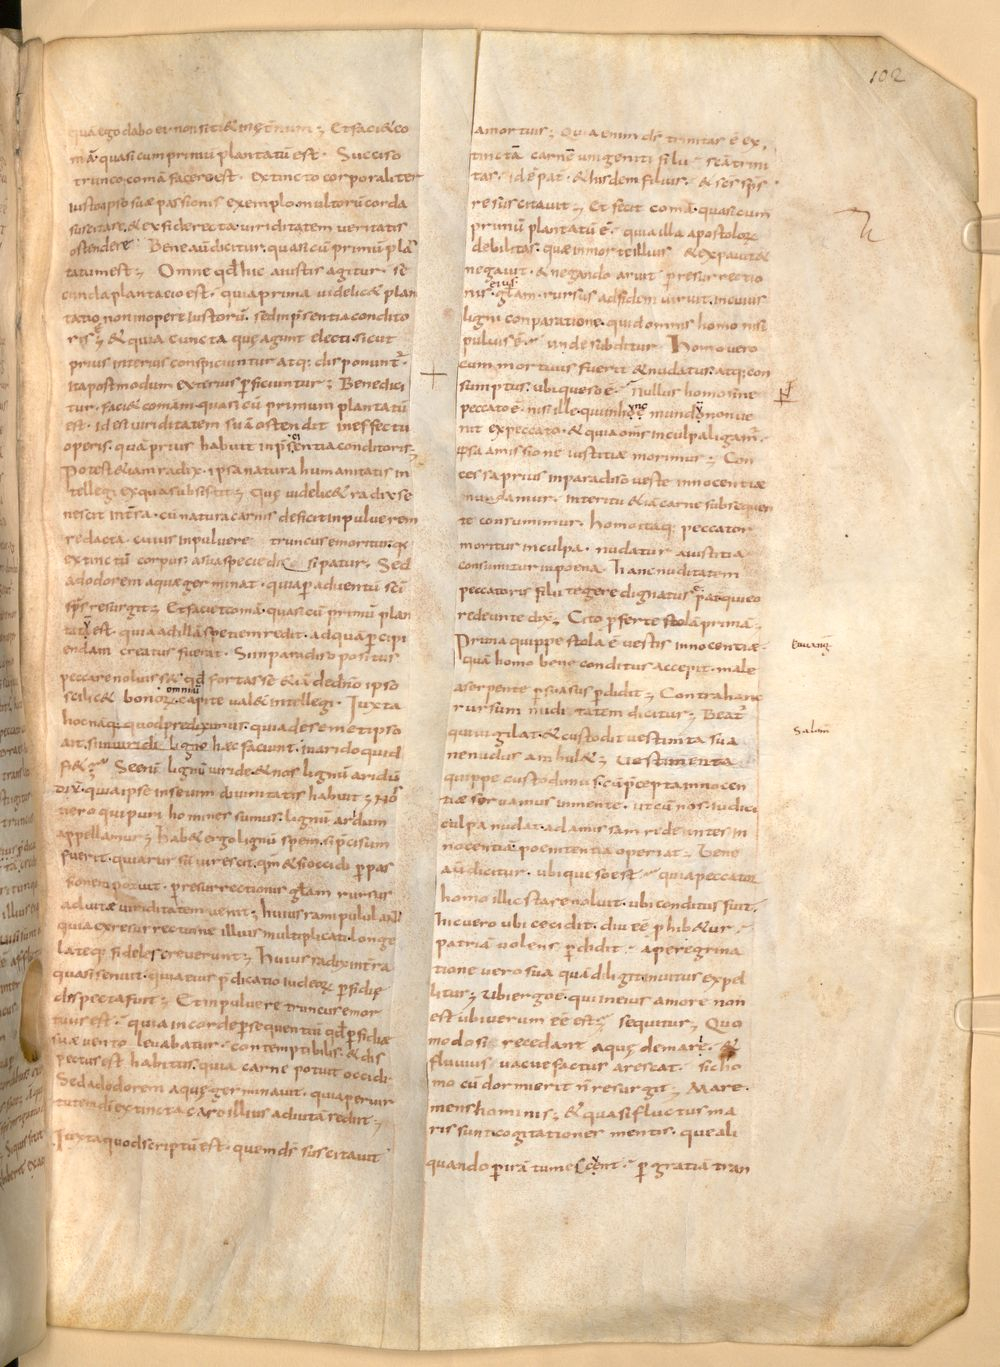 102
qua ego dabo ei non siti& in &ernum; Et faci& co
mā quasi cum primū plantatū est. Succiso
trunco comā facere est. extincto corporaliter
iusto ipso suæ passionis exemplo multorū corda
suscitare. & ex fide recta uiriditatem ueritatis
ostendere. Bene aūt dicitur. quasi cū primū plā
tatum est; Omne qđ hic a iustis agitur. se
cunda plantacio est. quia prima uidelic& plan
tatio non in opere iustorū. sed in p̄sentia condito
ris ē; & quia cuncta quę agunt electi sicut
prius interius conspiciuntur atq; disponunt̄
ita postmodum exterius p̄ficiuntur; Bene dici
tur. faci& comam quasi cū primum plantatū
est. id est uiriditatem suā ostendit in effectu
operis. quā prius habuit in p̄sentia conditoris;
Potest & iam radix. ipsa natura humanitatis in
tellegi ex qua subsistit; Quę uidelic& radix se
nescit in t̄ra. cū natura carnis deficit in puluerem
redacta. cuius in puluere truncus emoritur. qđ
extinctū corpus a sua specie dissipatur. Sed
ad odorem aquæ germinat. quia p̄ aduentū sc̄i
sp̄s resurgit; Et faciet comā. quasi cū primū plan
tatū est. quia ad illā spetiem redit. ad quā p̄cipi
endam creatus fuerat. Si in paradiso positus
peccare noluiss&. qđ fortasse & iā de dn̄o ipso
omniū
scilic& bonorū capite ual& intellegi. Iuxta
hoc nāq; quod prediximus. quia de semet ipso
ait. si in uiridi ligno hæc faciunt. in arido quid
fi&; Se enī lignū uiride. & nos lignū aridū
dix̄. quia ipse in se uim diuinitatis habuit; Nos
uero qui puri homines sumus. lignū aridum
appellamur; Hab& ergo lignū spem. si p̄cisum
fuerit. quia rursū uirescit. qm̄ & si occidi p̄ pas
sionem potuit. p̄ resurrectionis gl̄am rursus
ad uitæ uiriditatem uenit; huius rami pululant
quia ex resurrectione illius multiplicati longe
lateq; fideles creuerunt; Huius radix in t̄ra
quasi senuit. quia eius p̄dicatio iudeorū p̄fidię
dispecta fuit; Et in puluere truncus emor
tuus est. quia in corde p̄sequentiū qđ p̄fidiæ
suæ uento leuabatur. contemptibilis. & dis
pectus est habitus. quia carne potuit occidi
Sed ad odorem aquę germinauit. quia per uir
tutem dī extincta caro illius ad uitā redit;
Iuxta quod scriptū est. quem ds̄ suscitauit
a mortuis; Quia enim ds̄ trinitas ē ex
tinctā carnē unigeniti filii sc̄a trini
tas. id ē pat̄. & hisdem filius. & sc̄s sp̄s
resuscitauit; Et fecit comā. quasi cum
primū plantatū ē. quia illa apostolorū
debilitas. quæ in morte illius & expauit &
negauit. & negando aruit p̄ resurrectio
nis eius gl̄am. rursus ad fidem uiruit. in cuius
ligni conparatione. quid omnis homo nisi
puluis ē. unde subditur. Homo uero
cum mortuus fuerit & nudatus. atq; con
sumptus. ubi queso ē. Nullus homo sine
peccato ē. nisi ille. qui in hunc mundū non ue
nit ex peccato. & quia om̄s in culpa ligam̄.
ipsa amissione iustitiæ morimur; Con
cessa prius in paradiso ueste innocentiæ
nudamur. Interitu & iā carne subsequen
te consumimur. homo itaq; peccator
moritur in culpa. nudatur a iustitia
consumitur in poena. Hanc nuditatem
peccatoris filii tegere dignatus ē pat̄. qui eo
redeunte dix̄; Cito p̄ferte stolā primā;
Prima quippe stola ē uestis innocentiæ.
quā homo bene conditus accepit. male
a serpente p̄suasus p̄didit; Contra hanc
rursum nuditatem dicitur; Beat̄
qui uigilat. & custodit uestimta sua
ne nudus ambul&; Uestimenta
quippe custodimus. cū p̄cepta innocen
tiæ seruamus in mente. ut cū nos iudici
culpa nudat. ad amissam redeuntes in
nocentiā poenitentia operiat; Bene
aūt dicitur. ubi queso est. quia peccator
homo illic stare noluit. ubi conditus fuit.
Hic uero ubi cecidit. diu eē phib&ur.
patriā uolens p̄didit. a peregrina
tione uero sua quā diligit inuitus expel
litur; Ubi ergo ē. qui in eius amore non
est ubi uerum eē est; sequitur; Quo
modo si recedant aquę de mare. &
fluuius uacuefactus arescat. sic ho
mo cū dormierit n̄ resurgit; Mare
mens hominis; & quasi fluctus ma
ris sunt cogitationes mentis. que ali
quando p̄ irā tumescent. p̄ gratiā tran
Euuang
Salom